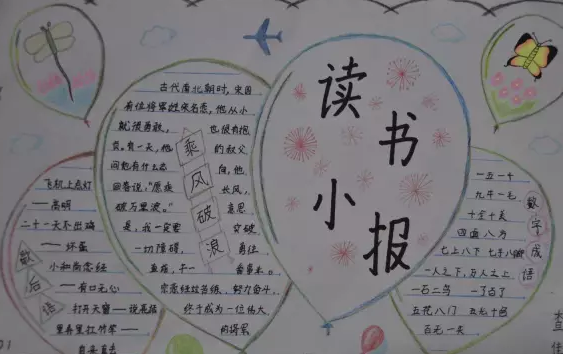 读书小报
古代南北朝时，宋国
有位将军姓宗名悫，他从小
就很勇敢，也很有抱
负。有一天，他的叔父
问他有什么志向，他
回答说，“愿乘长风，
破万里浪。”意思
是，我一定要突破
一切障碍，勇往
直前，干一番事业。
宗悫经过苦练，努力奋斗，
终于成为一位伟大
的将军
乘风破浪
飞机上点灯
——高明
二十一天不出鸡
——坏蛋
小和尚念经
——有口无心
打开天窗——说亮话
歇后语
一五一十
九牛一毛
十全十美
四面八方
七上八下
一人之下，万人之上
一石二鸟 一了百了
五花八门 五光十色
数字成语